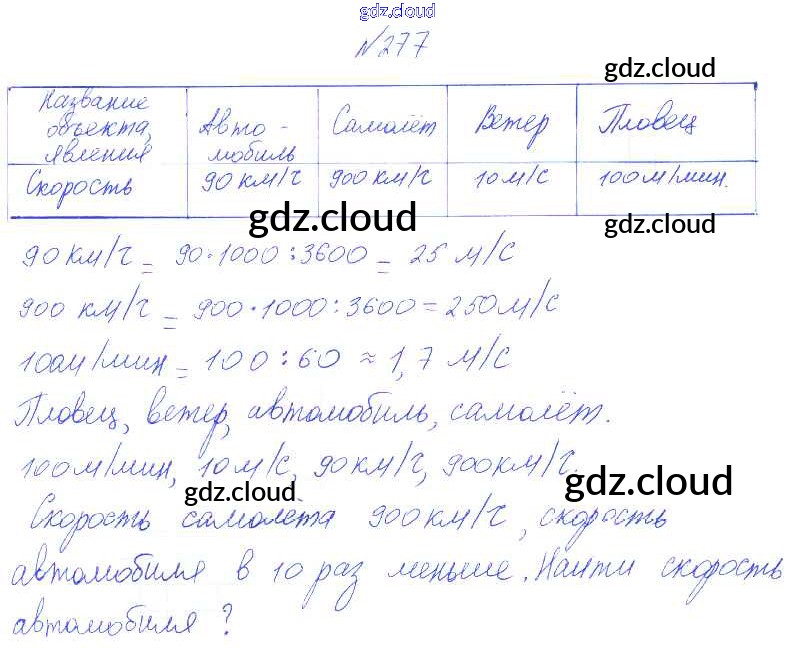 gdz.cloud
№277
gdz.cloud
Название объекта, явления Авто-мобиль Самолёт Ветер Пловец
Скорость 90 км/ч 900 км/ч 10 м/с 100 м/мин.
gdz.cloud gdz.cloud
90 км/ч = 90·1000:3600 = 25 м/с
900 км/ч = 900·1000:3600 = 250 м/с
100м/мин = 100:60 ≈ 1,7 м/с
Пловец, ветер, автомобиль, самолёт.
100м/мин, 10м/с, 90км/ч, 900км/ч.
gdz.cloud gdz.cloud
Скорость самолёта 900км/ч, скорость
автомобиля в 10 раз меньше. Найти скорость
автомобиля?